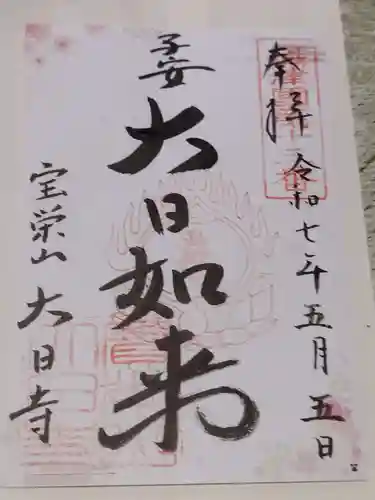 奉拝
令和七年五月五日
子安
大日如来
宝栄山
大日寺